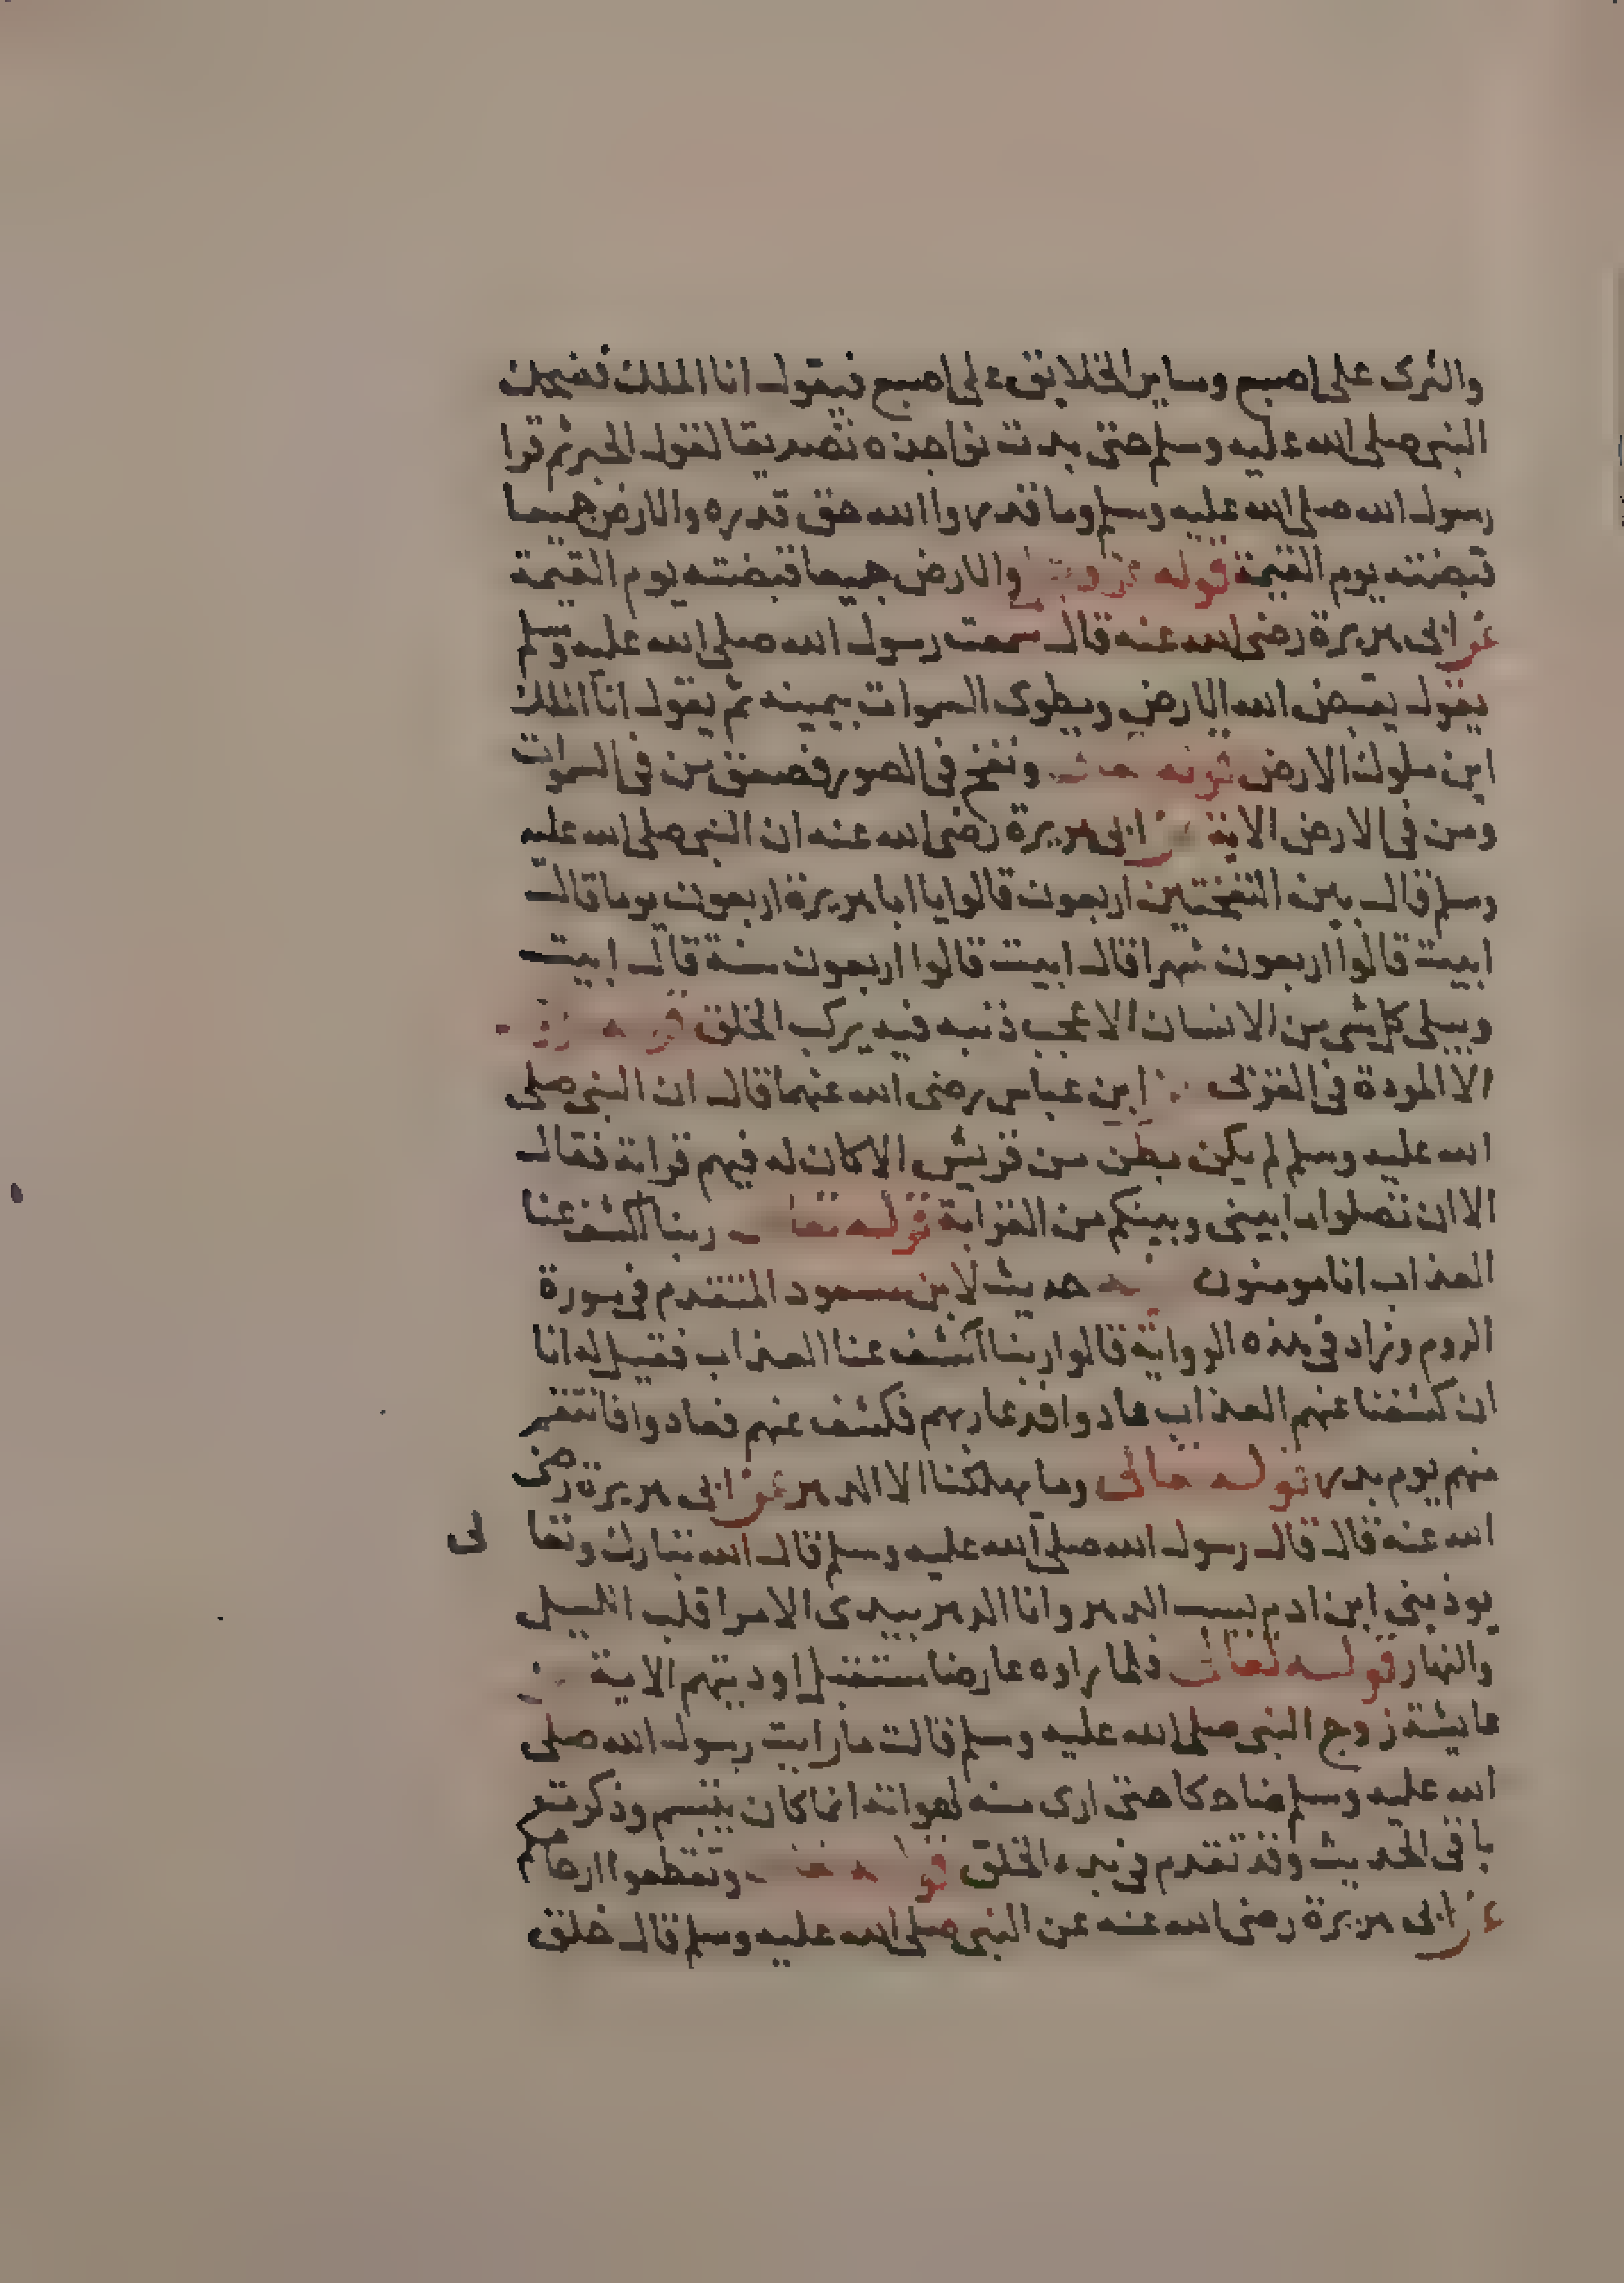 والثرى على اصبع وساير الخلايق على اصبع فيقول انا الملك فضحك
النبى صلى الله عليه وسلم حتى بدت نواجذه تصديقا لقول الحبر ثم قرا
رسول الله صلى الله عليه وسلم وما قدروا الله حق قدره والارض جميعا
قبضته يوم القيمة قوله عز وجل والارض جميعا قبضته يوم القيمة
عن ابى هريرة رضى الله عنه قال سمعت رسول الله صلى الله عليه وسلم
يقول يقبض الله الارض ويطوى السموات بيمينه ثم يقول انا الملك
اين ملوك الارض قوله ونفخ فى الصور فصعق من فى السموات
ومن فى الارض الاية عن ابى هريرة رضى الله عنه ان النبى صلى الله عليه
وسلم قال بين النفختين اربعون قالوا يا ابا هريرة اربعون يوما قال
ابيت قالوا اربعون شهرا قال ابيت قالوا اربعون سنة قال ابيت
ويبلى كل شى من الانسان الا عجب ذنبه فيه يركب الخلق قوله
الا المودة فى القربى عن ابن عباس رضى الله عنهما قال ان النبى صلى
الله عليه وسلم لم يكن بطن من قريش الا كان له فيهم قرابة فقال
الا ان تصلوا ما بينى وبينكم من القرابة قوله تعالى ربنا اكشف عنا
العذاب انا مومنون فيه حديث لابن مسعود المتقدم فى سورة
الروم وزاد فى هذه الرواية قالوا ربنا اكشف عنا العذاب فقيل له انا
ان كشفنا عنهم العذاب عادوا فدعا ربهم فكشف عنهم فعادوا فانتقم
منهم يوم بدر قوله تعالى وما يهلكنا الا الدهر عن ابى هريرة رضى
الله عنه قال قال رسول الله صلى الله عليه وسلم قال الله تبارك وتعالى
يوذينى ابن ادم يسب الدهر وانا الدهر بيدى الامر اقلب الليل
والنهار قوله تعالى فلما راوه عارضا مستقبل اوديتهم الاية عن
عايشة زوج النبى صلى الله عليه وسلم قالت ما رايت رسول الله صلى
الله عليه وسلم ضاحكا حتى ارى منه لهواته انما كان يتبسم وذكرت
باقى الحديث وقد تقدم فى بدء الخلق قوله تعالى وتقطعوا ارحامكم
عن ابى هريرة رضى الله عنه عن النبى صلى الله عليه وسلم قال خلق